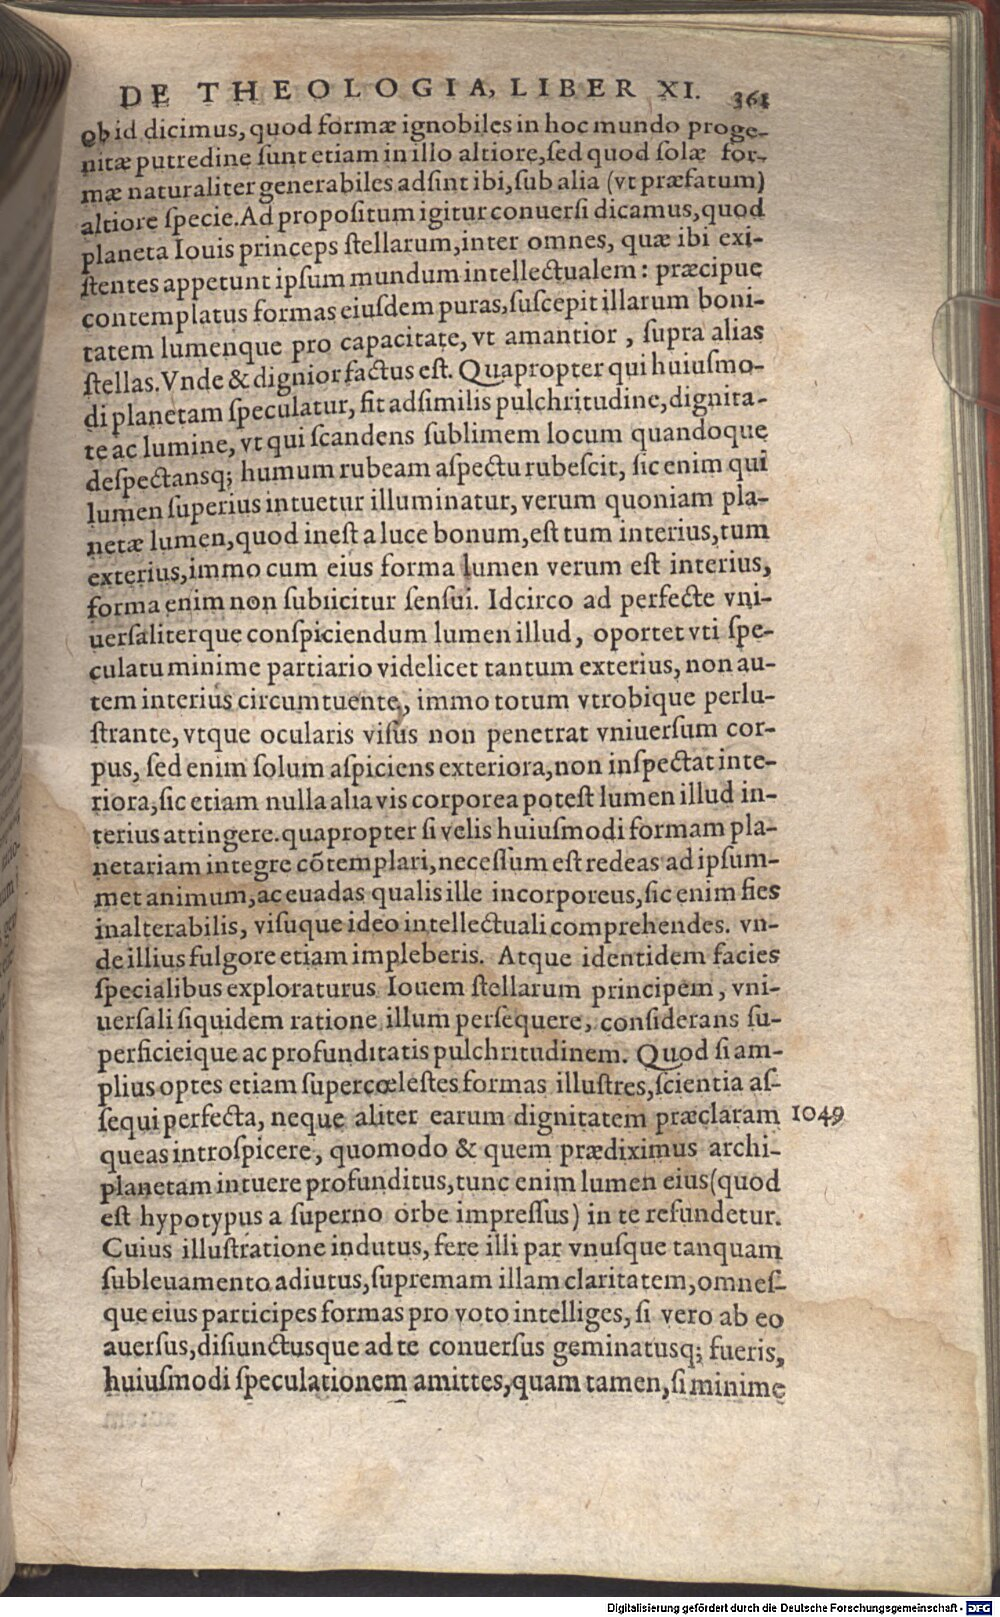 DE THEOLOGIA, LIBER XI. 361
ob id dicimus, quod formæ ignobiles in hoc mundo proge-
nitæ putredine ſunt etiam in illo altiore, ſed quod ſolæ for-
mæ naturaliter generabiles adſint ibi, ſub alia (vt præfatum)
altiore ſpecie. Ad propoſitum igitur conuerſi dicamus, quod
planeta Iouis princeps ſtellarum, inter omnes, quæ ibi exi-
ſtentes appetunt ipſum mundum intellectualem: præcipue
contemplatus formas eiuſdem puras, ſuſcepit illarum boni-
tatem lumenque pro capacitate, vt amantior, ſupra alias
ſtellas. Vnde & dignior factus eſt. Quapropter qui huiuſmo-
di planetam ſpeculatur, fit adſimilis pulchritudine, dignita-
te ac lumine, vt qui ſcandens ſublimem locum quandoque
deſpectansq; humum rubeam aſpectu rubeſcit, ſic enim qui
lumen ſuperius intuetur illuminatur, verum quoniam pla-
netæ lumen, quod ineſt a luce bonum, eſt tum interius, tum
exterius, immo cum eius forma lumen verum eſt interius,
forma enim non ſubiicitur ſenſui. Idcirco ad perfecte vni-
uerſaliterque conſpiciendum lumen illud, oportet vti ſpe-
culatu minime partiario videlicet tantum exterius, non au-
tem interius circumtuente, immo totum vtrobique perlu-
ſtrante, vtque ocularis viſus non penetrat vniuerſum cor-
pus, ſed enim ſolum aſpiciens exteriora, non inſpectat inte-
riora, ſic etiam nulla alia vis corporea poteſt lumen illud in-
terius attingere. quapropter ſi velis huiuſmodi formam pla-
netariam integre cõtemplari, neceſſum eſt redeas ad ipſum-
met animum, ac euadas qualis ille incorporeus, ſic enim fies
inalterabilis, viſuque ideo intellectuali comprehendes. vn-
de illius fulgore etiam impleberis. Atque identidem facies
ſpecialibus exploraturus Iouem ſtellarum principem, vni-
uerſali ſiquidem ratione illum perſequere, conſiderans ſu-
perficieique ac profunditatis pulchritudinem. Quod ſi am-
plius optes etiam ſupercœleſtes formas illuſtres, ſcientia aſ-
ſequi perfecta, neque aliter earum dignitatem præclaram 1049
queas introſpicere, quomodo & quem prædiximus archi-
planetam intuere profunditus, tunc enim lumen eius (quod
eſt hypotypus a ſuperno orbe impreſſus) in te refundetur.
Cuius illuſtratione indutus, fere illi par vnuſque tanquam
ſubleuamento adiutus, ſupremam illam claritatem, omneſ-
que eius participes formas pro voto intelliges, ſi vero ab eo
auerſus, diſiunctusque ad te conuerſus geminatusq; fueris,
huiuſmodi ſpeculationem amittes, quam tamen, ſi minime
Digitalisierung gefördert durch die Deutsche Forschungsgemeinschaft - DFG